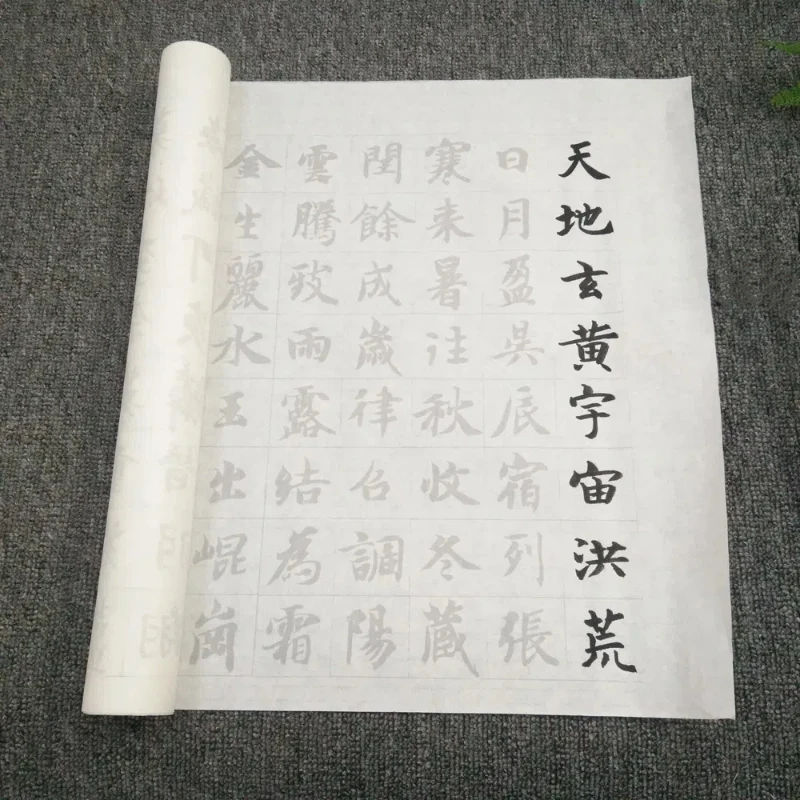 天地玄黄宇宙洪荒
日月盈昃辰宿列張
寒来暑往秋收冬藏
閏餘成歲律召調陽
雲騰致雨露結為霜
金生麗水玉出崐崗